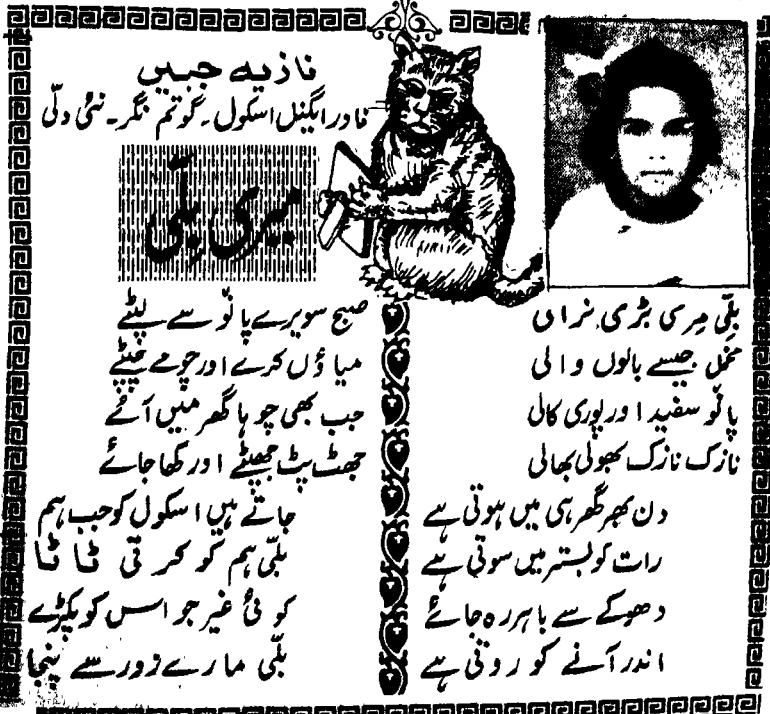 نازیہ جبیں
فادر ایگنل اسکول۔ گوتم نگر۔ نئی دلّی
میری بلّی
بلّی مری بڑی نرالی
مخمل جیسے بالوں والی
پانو سفید اور پوری کالی
نازک نازک بھولی بھالی
دن بھر گھر ہی میں ہوتی ہے
رات کو بستر میں سوتی ہے
دھوکے سے باہر رہ جائے
اندر آنے کو روتی ہے
صبح سویرے پانو سے لپٹے
میاؤں کرے اور چومے چپٹے
جب بھی چوہا گھر میں آئے
جھٹ پٹ جھپٹے اور کھا جائے
جاتے ہیں اسکول کو جب ہم
بلّی ہم کو کرتی ٹاٹا
کوئی غیر جو اس کو پکڑے
بلّی مارے زور سے پنجا